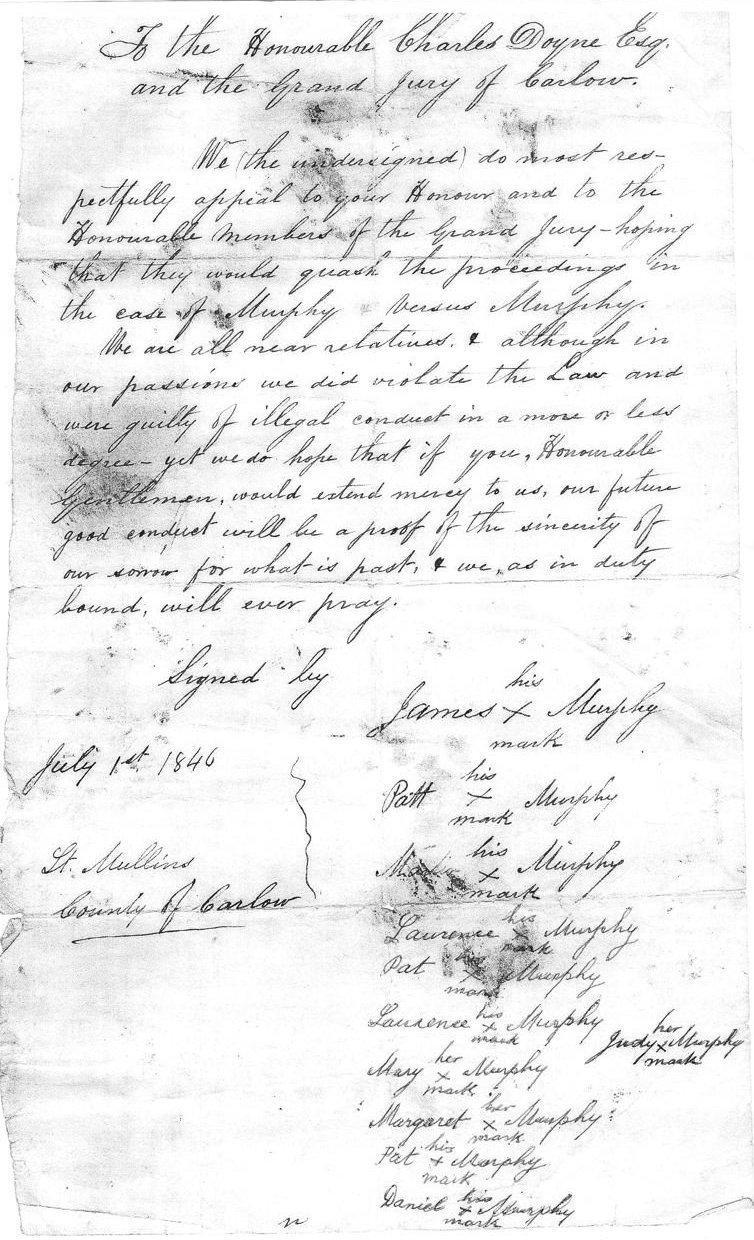 To the Honourable Charles Doyne Esq.
and the Grand Jury of Carlow.
We (the undersigned) do most res-
pectfully appeal to your Honour and to the
Honourable Members of the Grand Jury - hoping
that they would quash the proceedings in
the case of Murphy versus Murphy.
We are all near relatives. & although in
our passions we did violate the Law and
were guilty of illegal conduct in a more or less
degree - yet we do hope that if you, Honourable
Gentlemen, would extend mercy to us, our future
good conduct will be a proof of the sincerity of
our sorrow for what is past, & we, as in duty
bound, will ever pray.
Signed by
July 1st 1846
St. Mullins
County of Carlow
his
James X Murphy
mark
his
Patt X Murphy
mark
his
X Murphy
mark
his
Laurence X Murphy
mark
his
Pat X Murphy
mark
his
Laurence X Murphy
mark
her
Judy X Murphy
mark
her
Mary X Murphy
mark
her
Margaret X Murphy
mark
his
Pat X Murphy
mark
his
Daniel X Murphy
mark